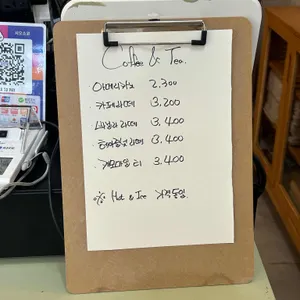 Coffee & Tea.
아메리카노 2,300
카페라떼 3,200
바닐라 라떼 3,400
3,400
캐모마일 티 3,400
※ Hot & Ice 가격동일